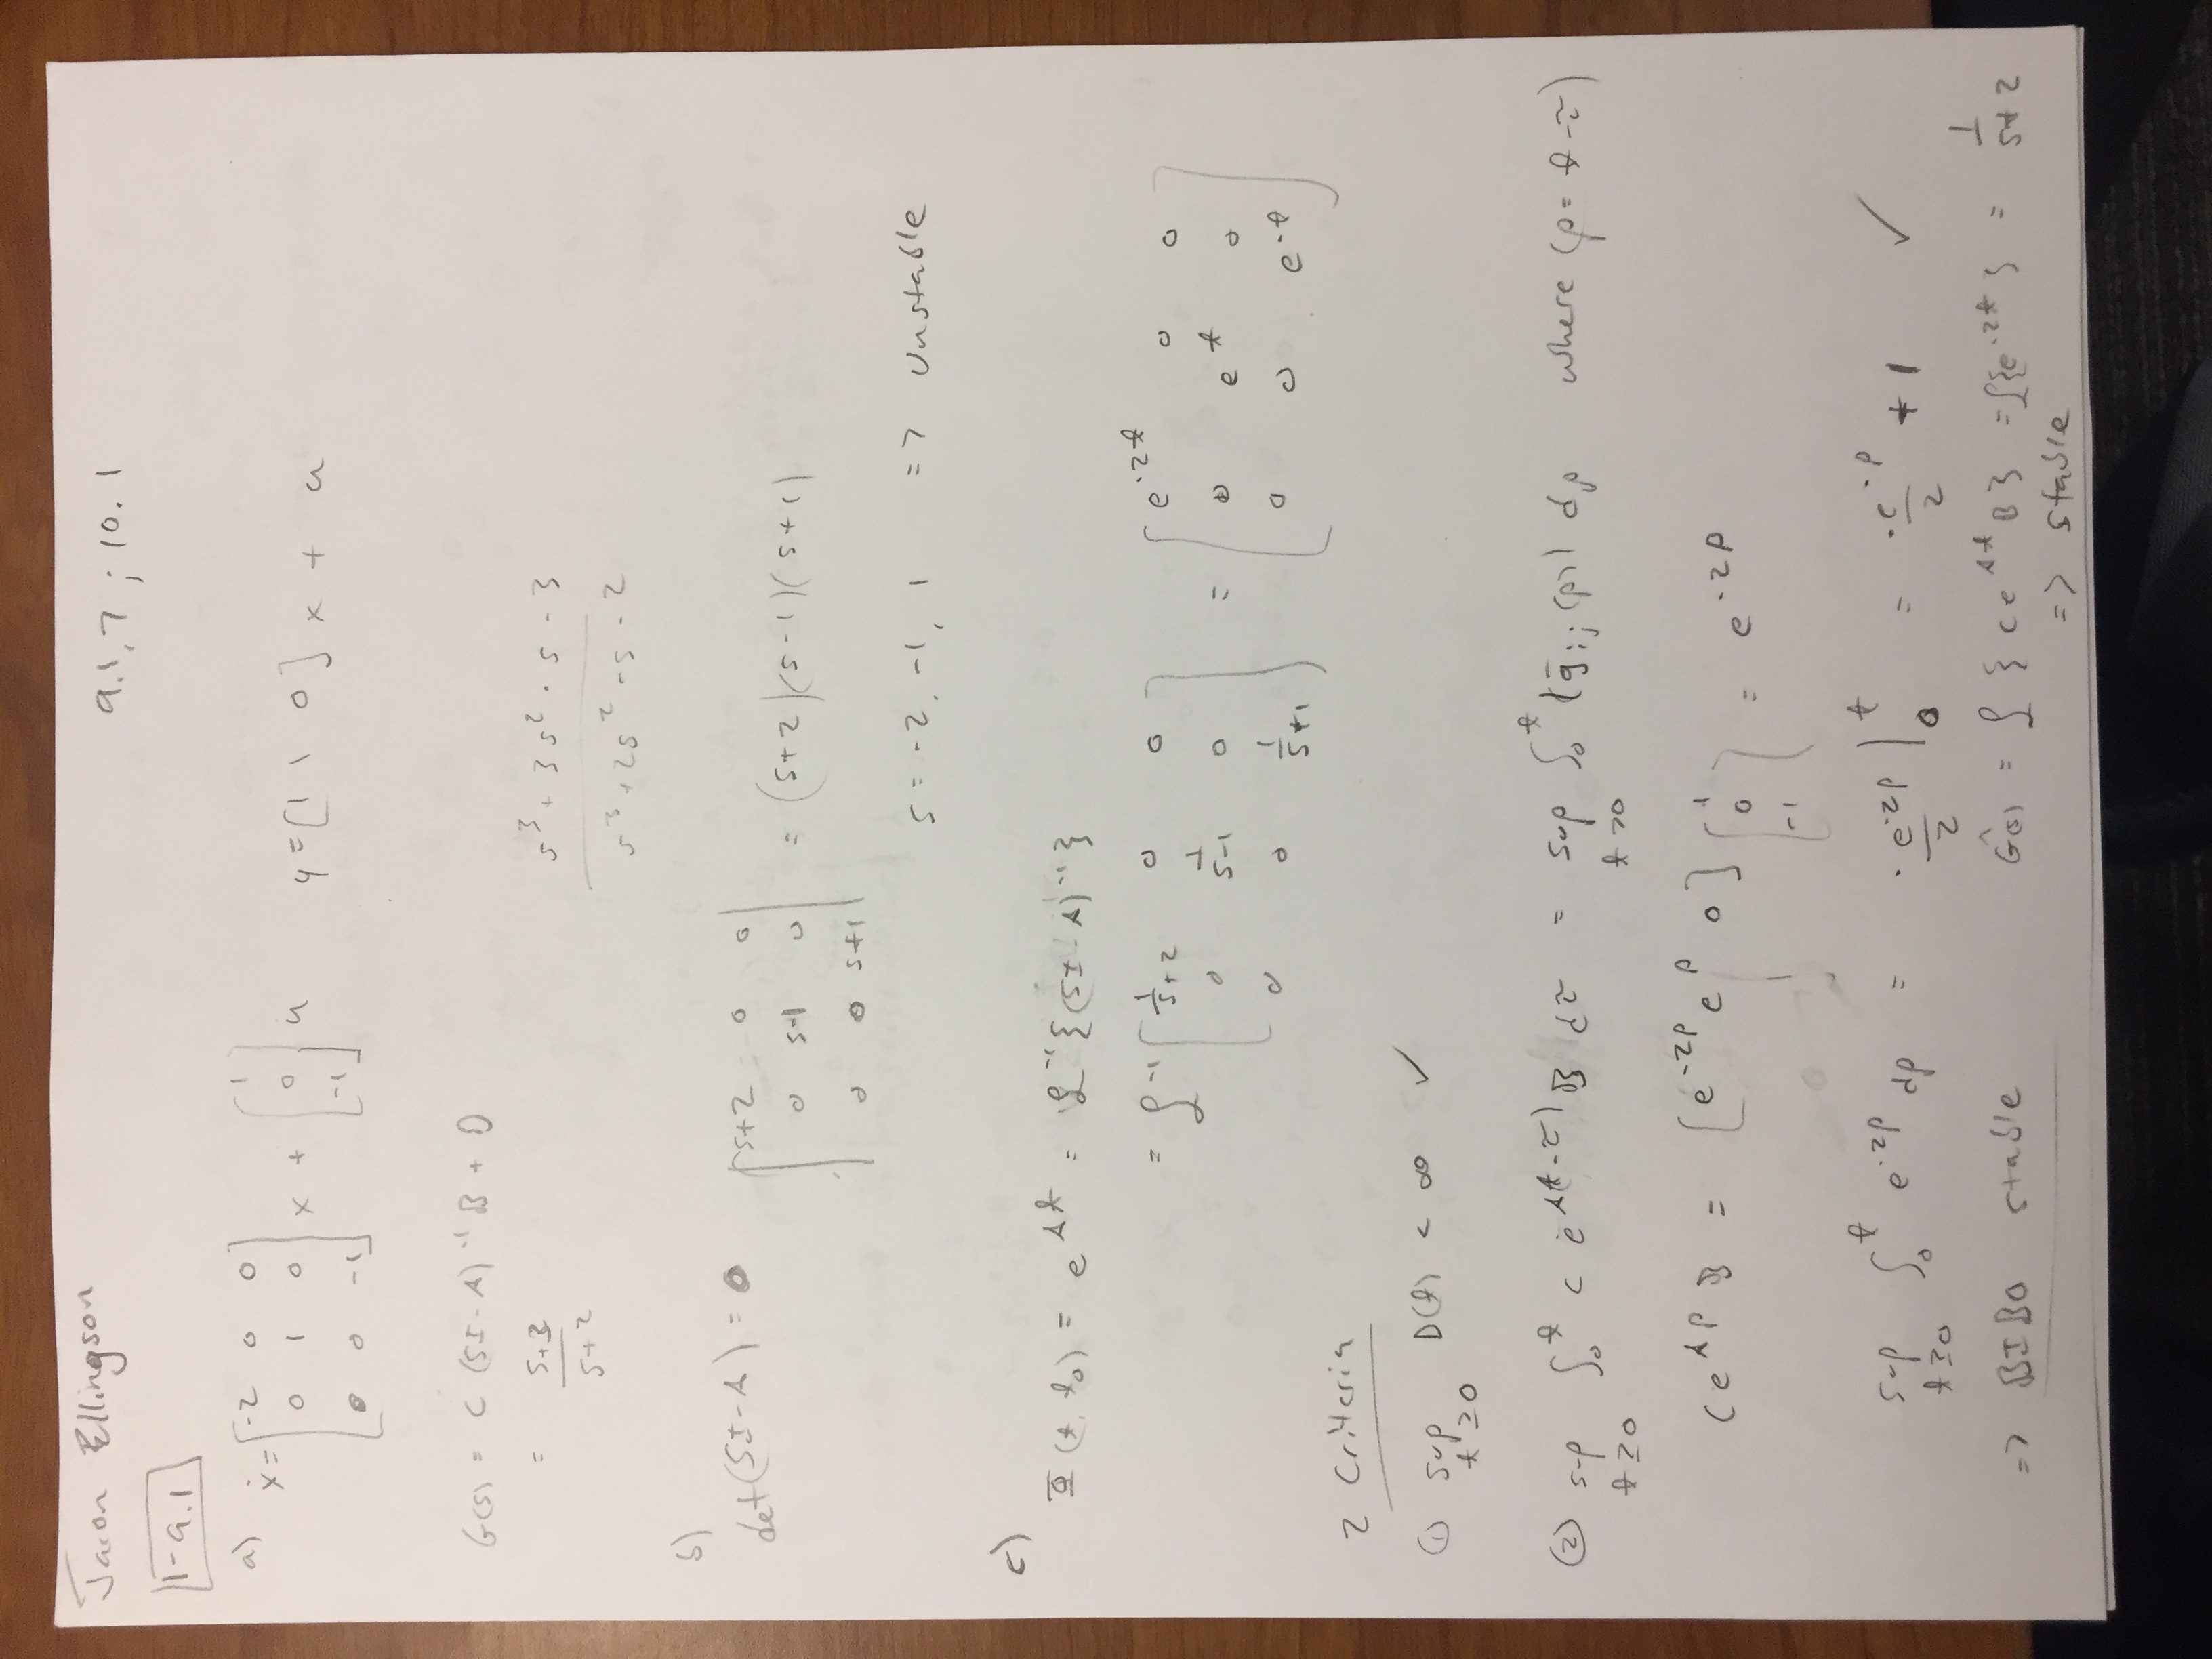 Jaron Ellingson
9.1,7 ; 10.1
1-9.1
a) ẋ = [-2 0 0; 0 1 0; 0 0 -1] x + [1; 0; -1] u   y = [1 1 0] x + u
G(s) = C (SI - A)^-1 B + D
= (s+3)/(s+2)   (s^3 + 3s^2 - s - 3)/(s^3 + 2s^2 - s - 2)
b)
det(SI-A) = 0   |s+2 0 0; 0 s-1 0; 0 0 s+1| = (s+2)(s-1)(s+1)
s = -2, -1, 1 => Unstable
c)
Φ(t, t₀) = e^At = ℒ^-1 {(SI - A)^-1}
= ℒ^-1 [1/(s+2) 0 0; 0 1/(s-1) 0; 0 0 1/(s+1)] = [e^-2t 0 0; 0 e^t 0; 0 0 e^-t]
2 Criteria
① sup t≥0 D(t) < ∞ ✓
② sup t≥0 ∫₀^t C e^A(t-τ) B dτ = sup t>0 ∫₀^t |ḡij(ρ)| dρ where (ρ = t-τ)
C e^Aρ B = [e^-2ρ e^ρ 0] [1; 0; -1] = e^-2ρ
sup t≥0 ∫₀^t e^-2ρ dρ = -e^-2ρ/2 |₀^t = -e^-ρ/2 + 1 ✓
=> BIBO stable   Ĝ(s) = ℒ{C e^At B} = ℒ{e^-2t} = 1/(s+2)
=> stable